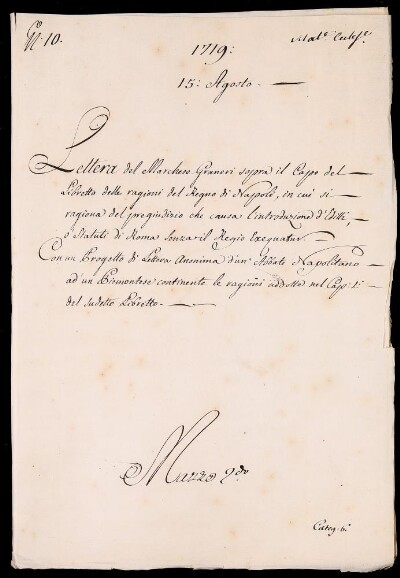 N.° 10.
1719:
Mat.e Eccles.e
15: Agosto.
Lettera del Marchese Graneri sopra il Capo del
Libretto delle ragioni del Regno di Napoli, in cui si
ragiona del pregiudizio che causa l'introduzione d'Editti,
o Statuti di Roma senza il Regio Exequatur.
Con un Progetto di Lettera Anonima d'un Abbate Napolitano
ad un Piemontese continente le ragioni addotte nel Cap. 1:
del sudetto Libretto.
Mazzo 2.do
Categ. 6.